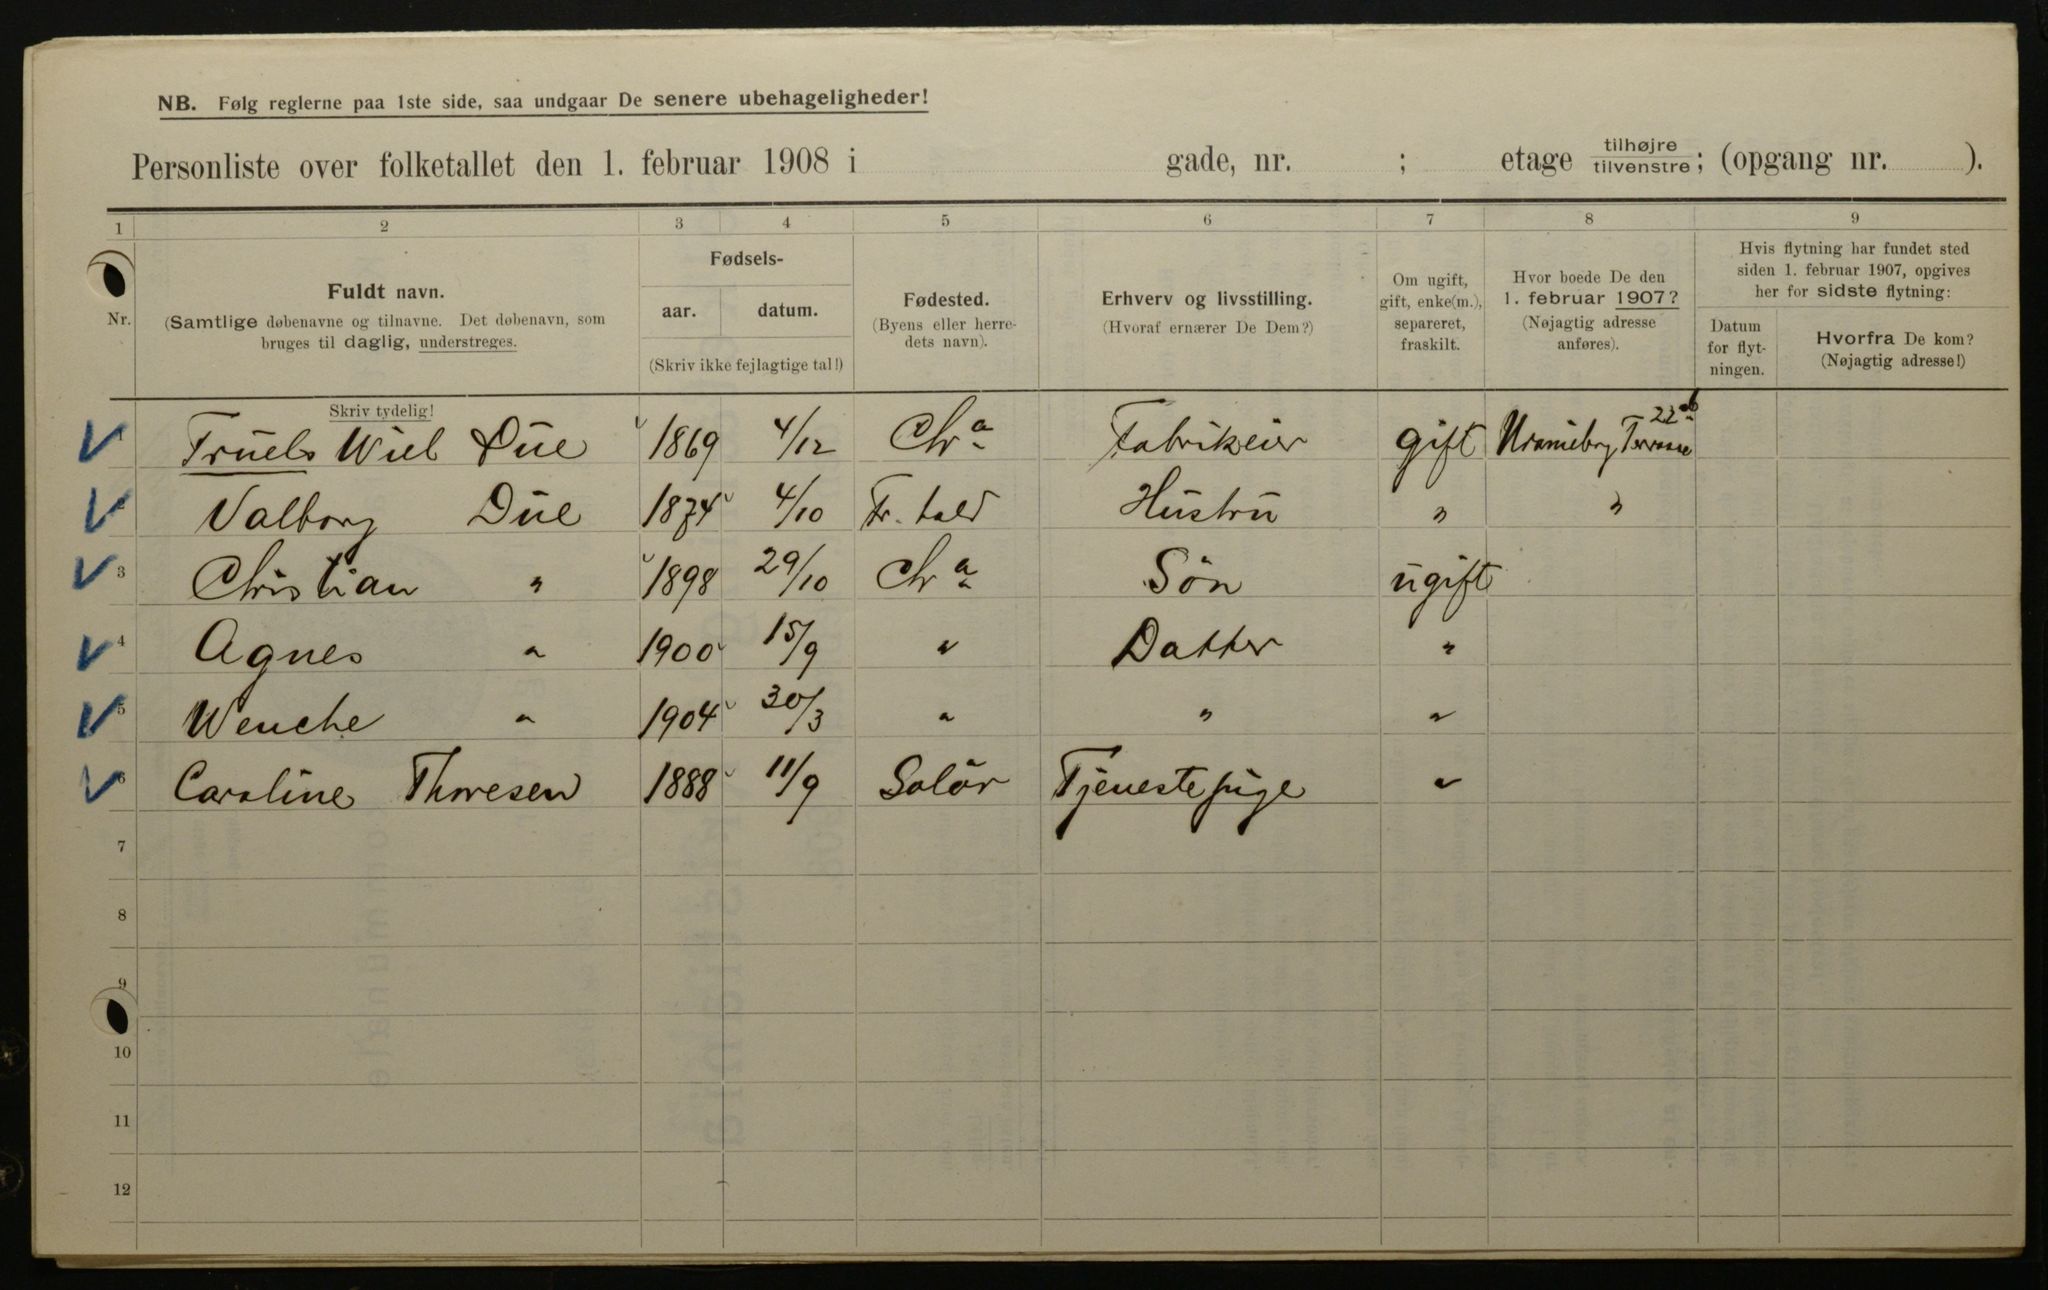 NB. Følg reglerne paa 1ste side, saa undgaar De senere ubehageligheder!
Personliste over folketallet den 1. februar 1908 i gade, nr. ; etage tilhøjre tilvenstre; (opgang nr. ).
1 2 3 4 5 6 7 8 9
Nr.
Fuldt navn.
(Samtlige døbenavne og tilnavne. Det døbenavn, som
bruges til daglig, understreges.
Skriv tydelig!
Fødsels-
aar. datum.
(Skriv ikke fejlagtige tal!)
Fødested.
(Byens eller herre-
dets navn).
Erhverv og livsstilling.
(Hvoraf ernærer De Dem?)
Om ugift,
gift, enke(m.),
separeret,
fraskilt.
Hvor boede De den
1. februar 1907?
(Nøjagtig adresse
anføres).
Hvis flytning har fundet sted
siden 1. februar 1907, opgives
her for sidste flytning:
Datum
for flyt-
ningen.
Hvorfra De kom?
(Nøjagtig adresse!)
Truels Wiel Due 1869 4/12 Chr a Fabrikeier gift Uranieborg Terrasse 22 b
Valborg Due 1874 4/10 Fr. hald Hustru " "
3 Christian " 1898 29/10 Chr a Søn ugift
4 Agnes " 1900 15/9 " Datter "
5 Wenche " 1904 30/3 " " "
6 Caroline Thoresen 1888 11/9 Solör Tjenestepige "
7
8
9
10
11
12